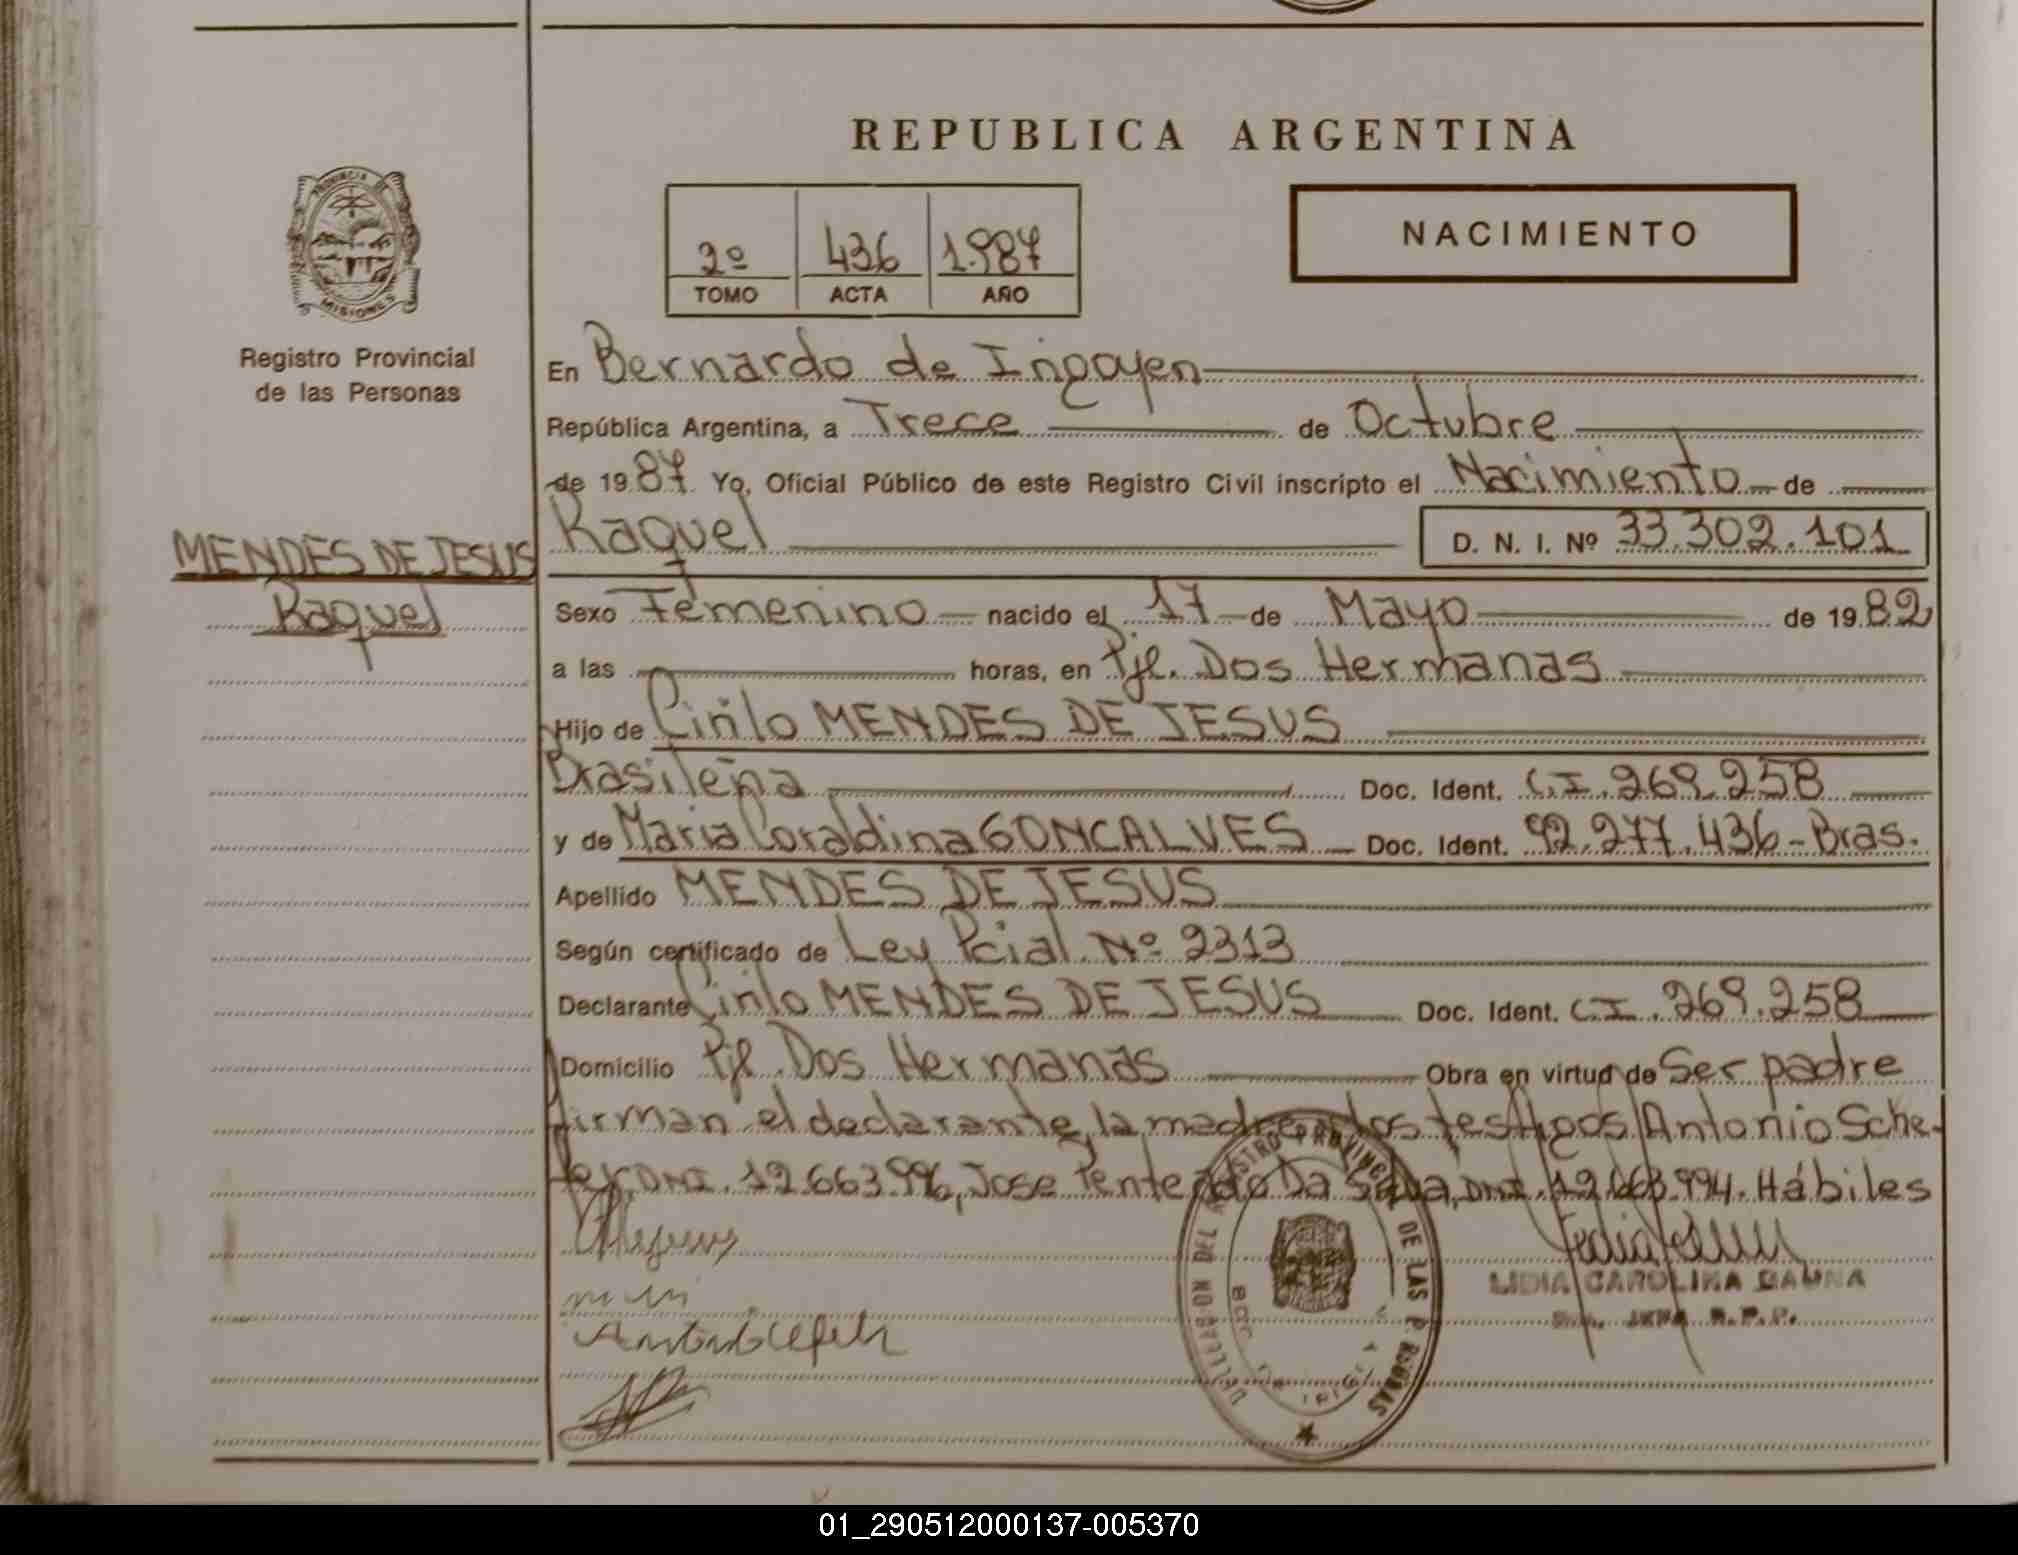 REPUBLICA ARGENTINA
PROVINCIA DE
MISIONES
Registro Provincial
de las Personas
2º 436 1.987
TOMO ACTA AÑO
NACIMIENTO
En Bernardo de Irigoyen
República Argentina, a Trece de Octubre
de 1987. Yo, Oficial Público de este Registro Civil inscripto el Nacimiento de
MENDES DE JESUS
Raquel
Raquel D. N. I. Nº 33.302.101
Sexo Femenino nacido el 17 de Mayo de 1982
a las horas, en Pjl. Dos Hermanas
Hijo de Cirilo MENDES DE JESUS
Brasileña Doc. Ident. C.I. 269.258
y de Maria Coraldina GONCALVES Doc. Ident. 92.277.436 - Bras.
Apellido MENDES DE JESUS
Según certificado de Ley Pcial. Nº 2313
Declarante Cirilo MENDES DE JESUS Doc. Ident. C.I. 269.258
Domicilio Pjl. Dos Hermanas Obra en virtud de Ser padre
firman el declarante, la madre, los testigos Antonio Sche-
fer, DNI. 12.663.996, Jose Penteado Da Silva, DNI. 12.663.994. Hábiles
DELEGACION DEL REGISTRO PROVINCIAL DE LAS PERSONAS
LIDIA CAROLINA DAUNA
JEFA R.P.P.
01_290512000137-005370